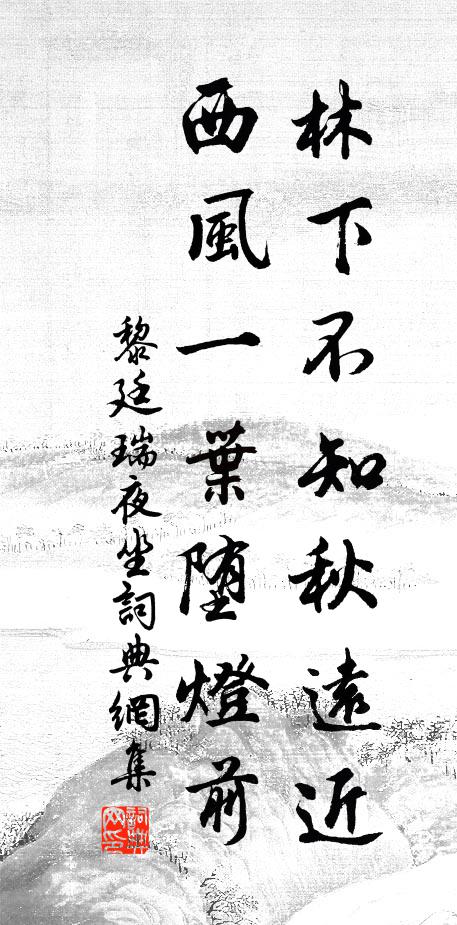 林下不知秋遠近
西風一葉堕燈前
黎廷瑞夜坐詞典網集